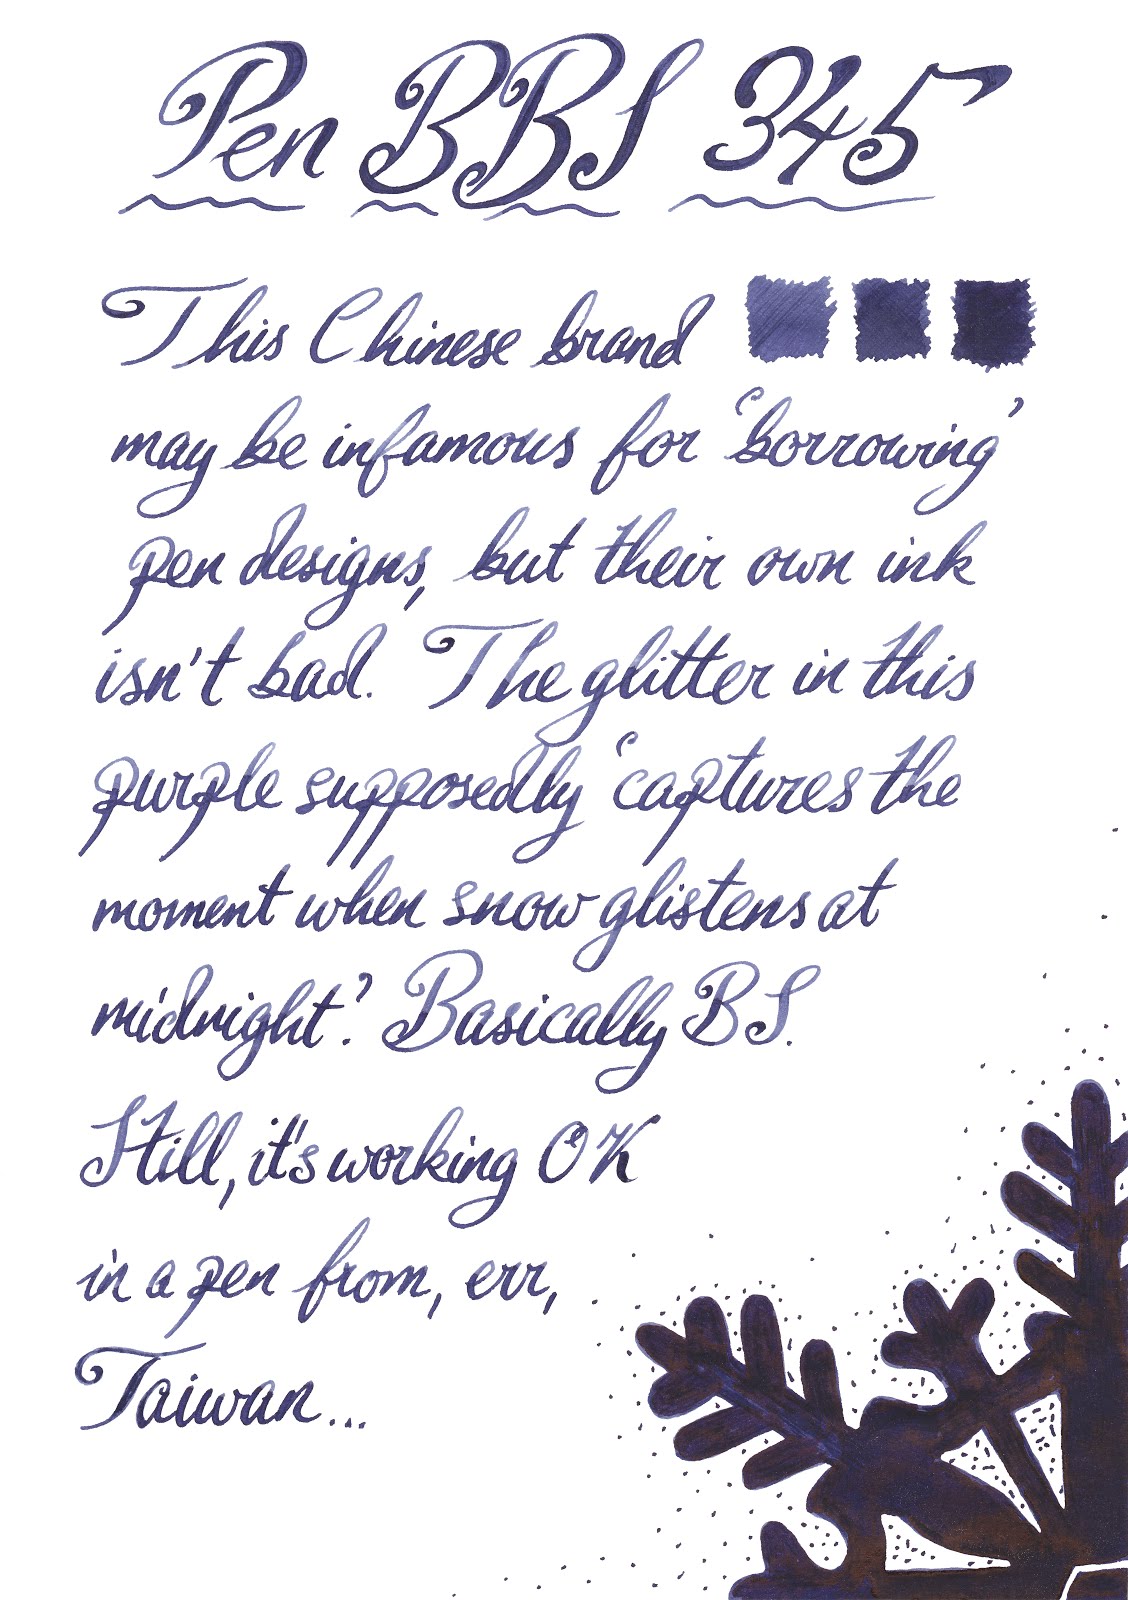 Pen BBS 345
This Chinese brand
may be infamous for 'borrowing'
pen designs, but their own ink
isn't bad. The glitter in this
purple supposedly 'captures the
moment when snow glistens at
midnight'. Basically BS.
Still, it's working OK
in a pen from, err,
Taiwan...